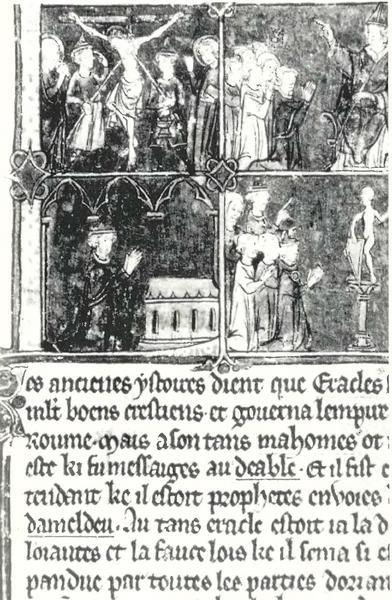 es ancienes ystoires dient que Eracles
mlt boens crestiens et gouerna lempire
Roume. mais a son tans mahomes ot
este ki fu messaiges au deable. Et il fist e
tendent ke il estoit prophetes enuoies
dameldeu. Au tans eracle estoit ia la d
loiautes et la fauce lois ke il sema si e
pandue par toutes les parties dorian